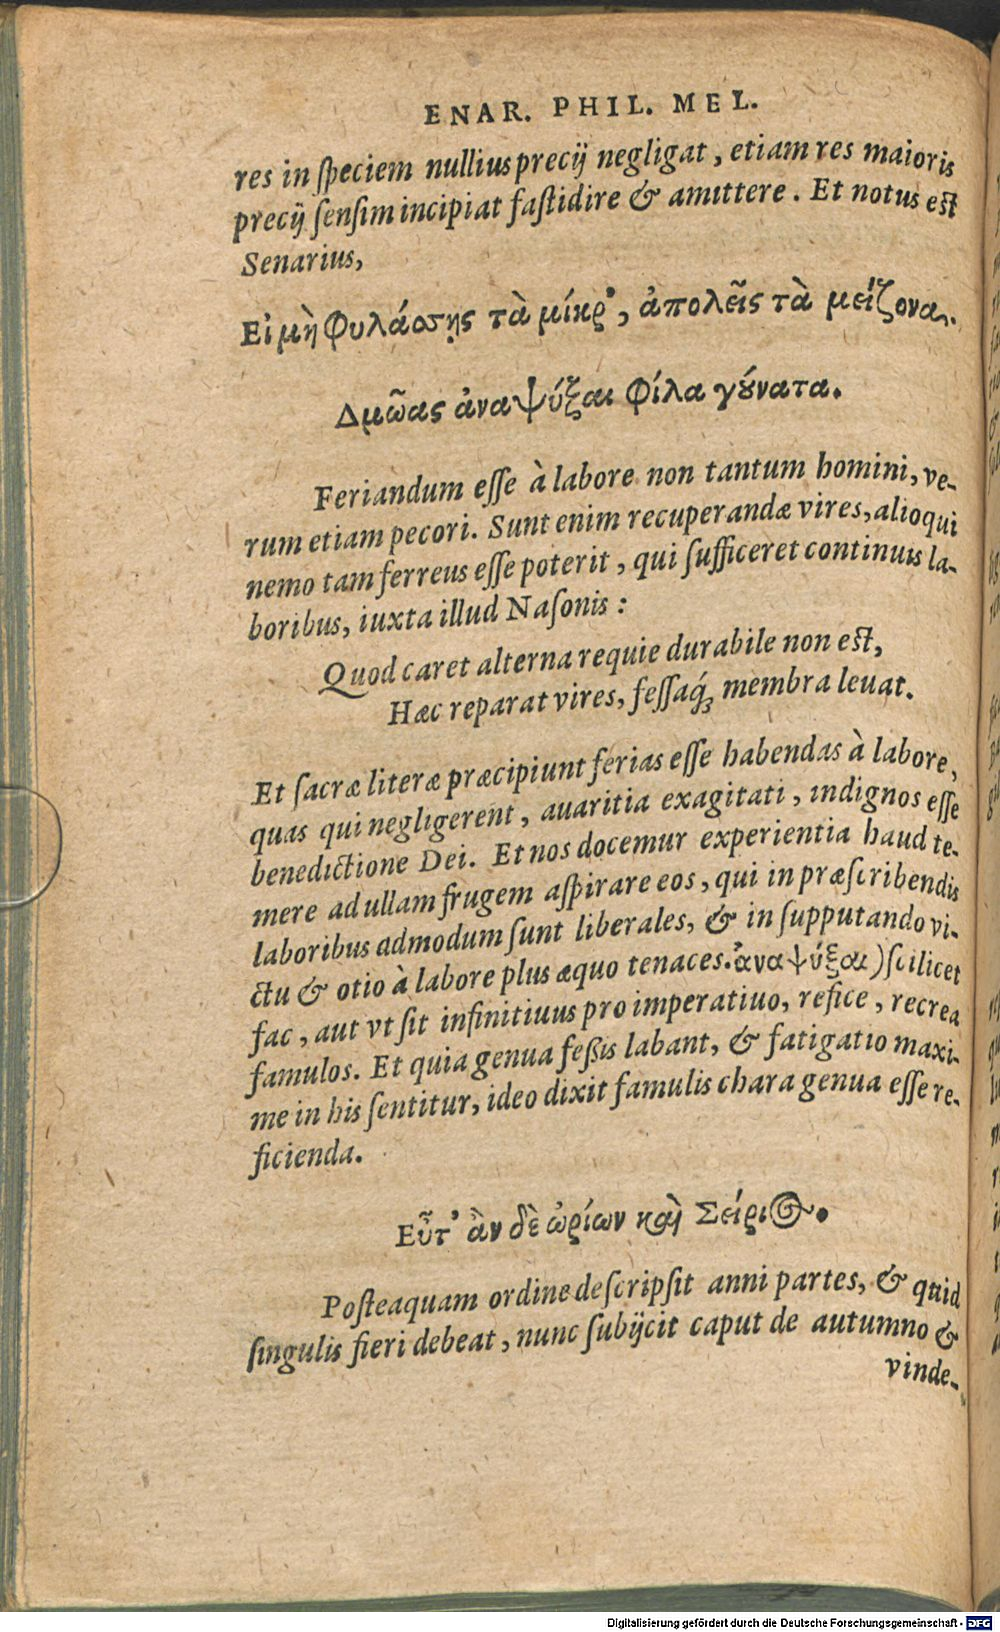 ENAR. PHIL. MEL.
res in ſpeciem nullius precij negligat, etiam res maioris
precij ſenſim incipiat faſtidire & amittere. Et notus est
Senarius,
Εἰ μὴ φυλάσσῃς τὰ μίκρ', ἀπολεῖς τὰ μείζονα.
Δμῶας ἀναψύξαι φίλα γούνατα.
Feriandum eſſe à labore non tantum homini, ve-
rum etiam pecori. Sunt enim recuperandæ vires, alioqui
nemo tam ferreus eſſe poterit, qui ſufficeret continuis la-
boribus, iuxta illud Naſonis:
Quod caret alterna requie durabile non est,
Hæc reparat vires, feſſaq́; membra leuat.
Et ſacræ literæ præcipiunt ferias eſſe habendas à labore,
quas qui negligerent, auaritia exagitati, indignos eſſe
benedictione Dei. Et nos docemur experientia haud te-
mere ad ullam frugem aſpirare eos, qui in præſcribendis
laboribus admodum ſunt liberales, & in ſupputando vi-
ctu & otio à labore plus æquo tenaces. ἀναψύξαι) ſcilicet
fac, aut vt ſit infinitiuus pro imperatiuo, refice, recrea
famulos. Et quia genua feßis labant, & fatigatio maxi-
me in his ſentitur, ideo dixit famulis chara genua eſſe re-
ficienda.
Εὖτ' ἂν δὲ ὠρίων καὶ Σείριος.
Poſteaquam ordine deſcripſit anni partes, & quid
ſingulis fieri debeat, nunc ſubijcit caput de autumno &
vinde-
Digitalisierung gefördert durch die Deutsche Forschungsgemeinschaft - DFG